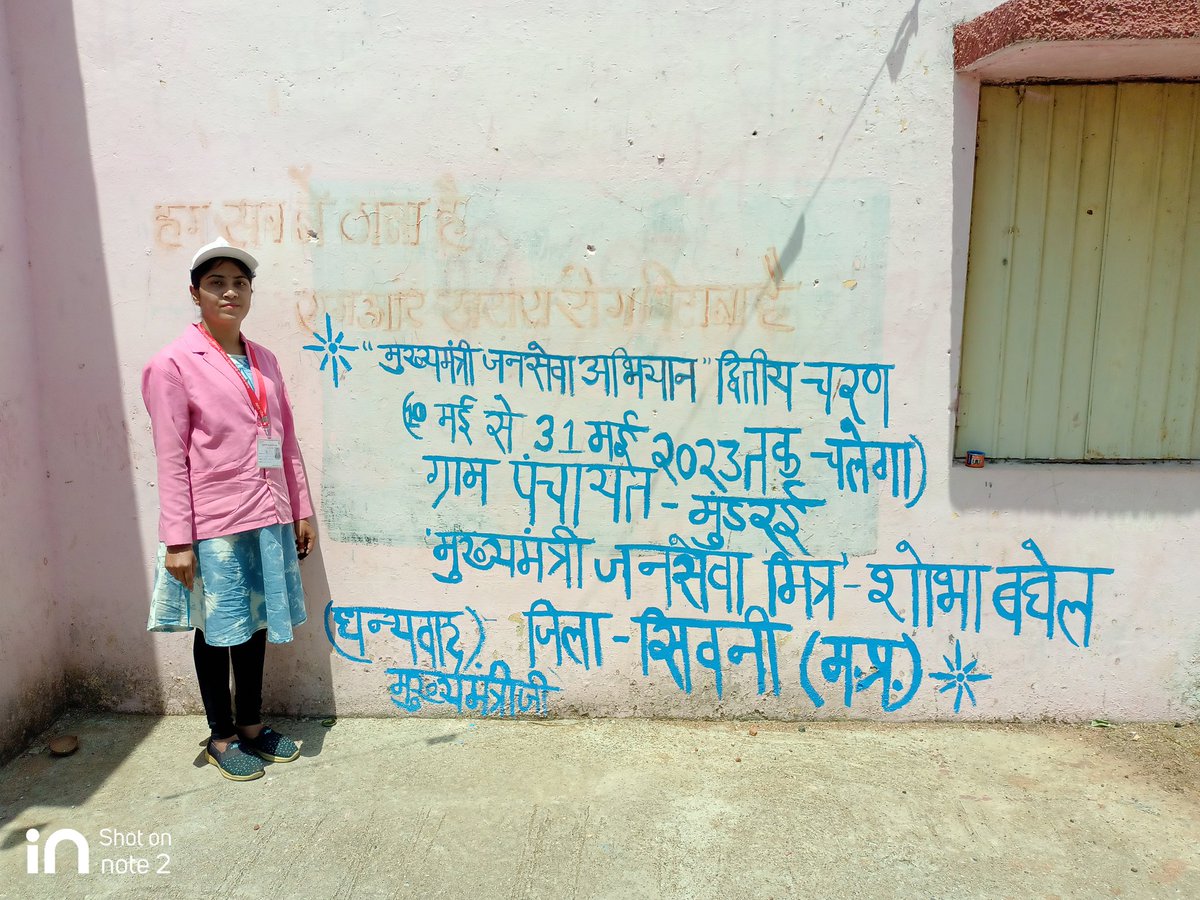 हम सब ने ठाना है
एम आर खसरा रोग मिटाना है
"मुख्यमंत्री जनसेवा अभियान" द्वितीय चरण
(10 मई से 31 मई २०२३ तक चलेगा)
ग्राम पंचायत - मुंडरई
'मुख्यमंत्री जनसेवा मित्र' - शोभा बघेल
(धन्यवाद) जिला - सिवनी (म.प्र.)
मुख्यमंत्री जी
in Shot on
note 2